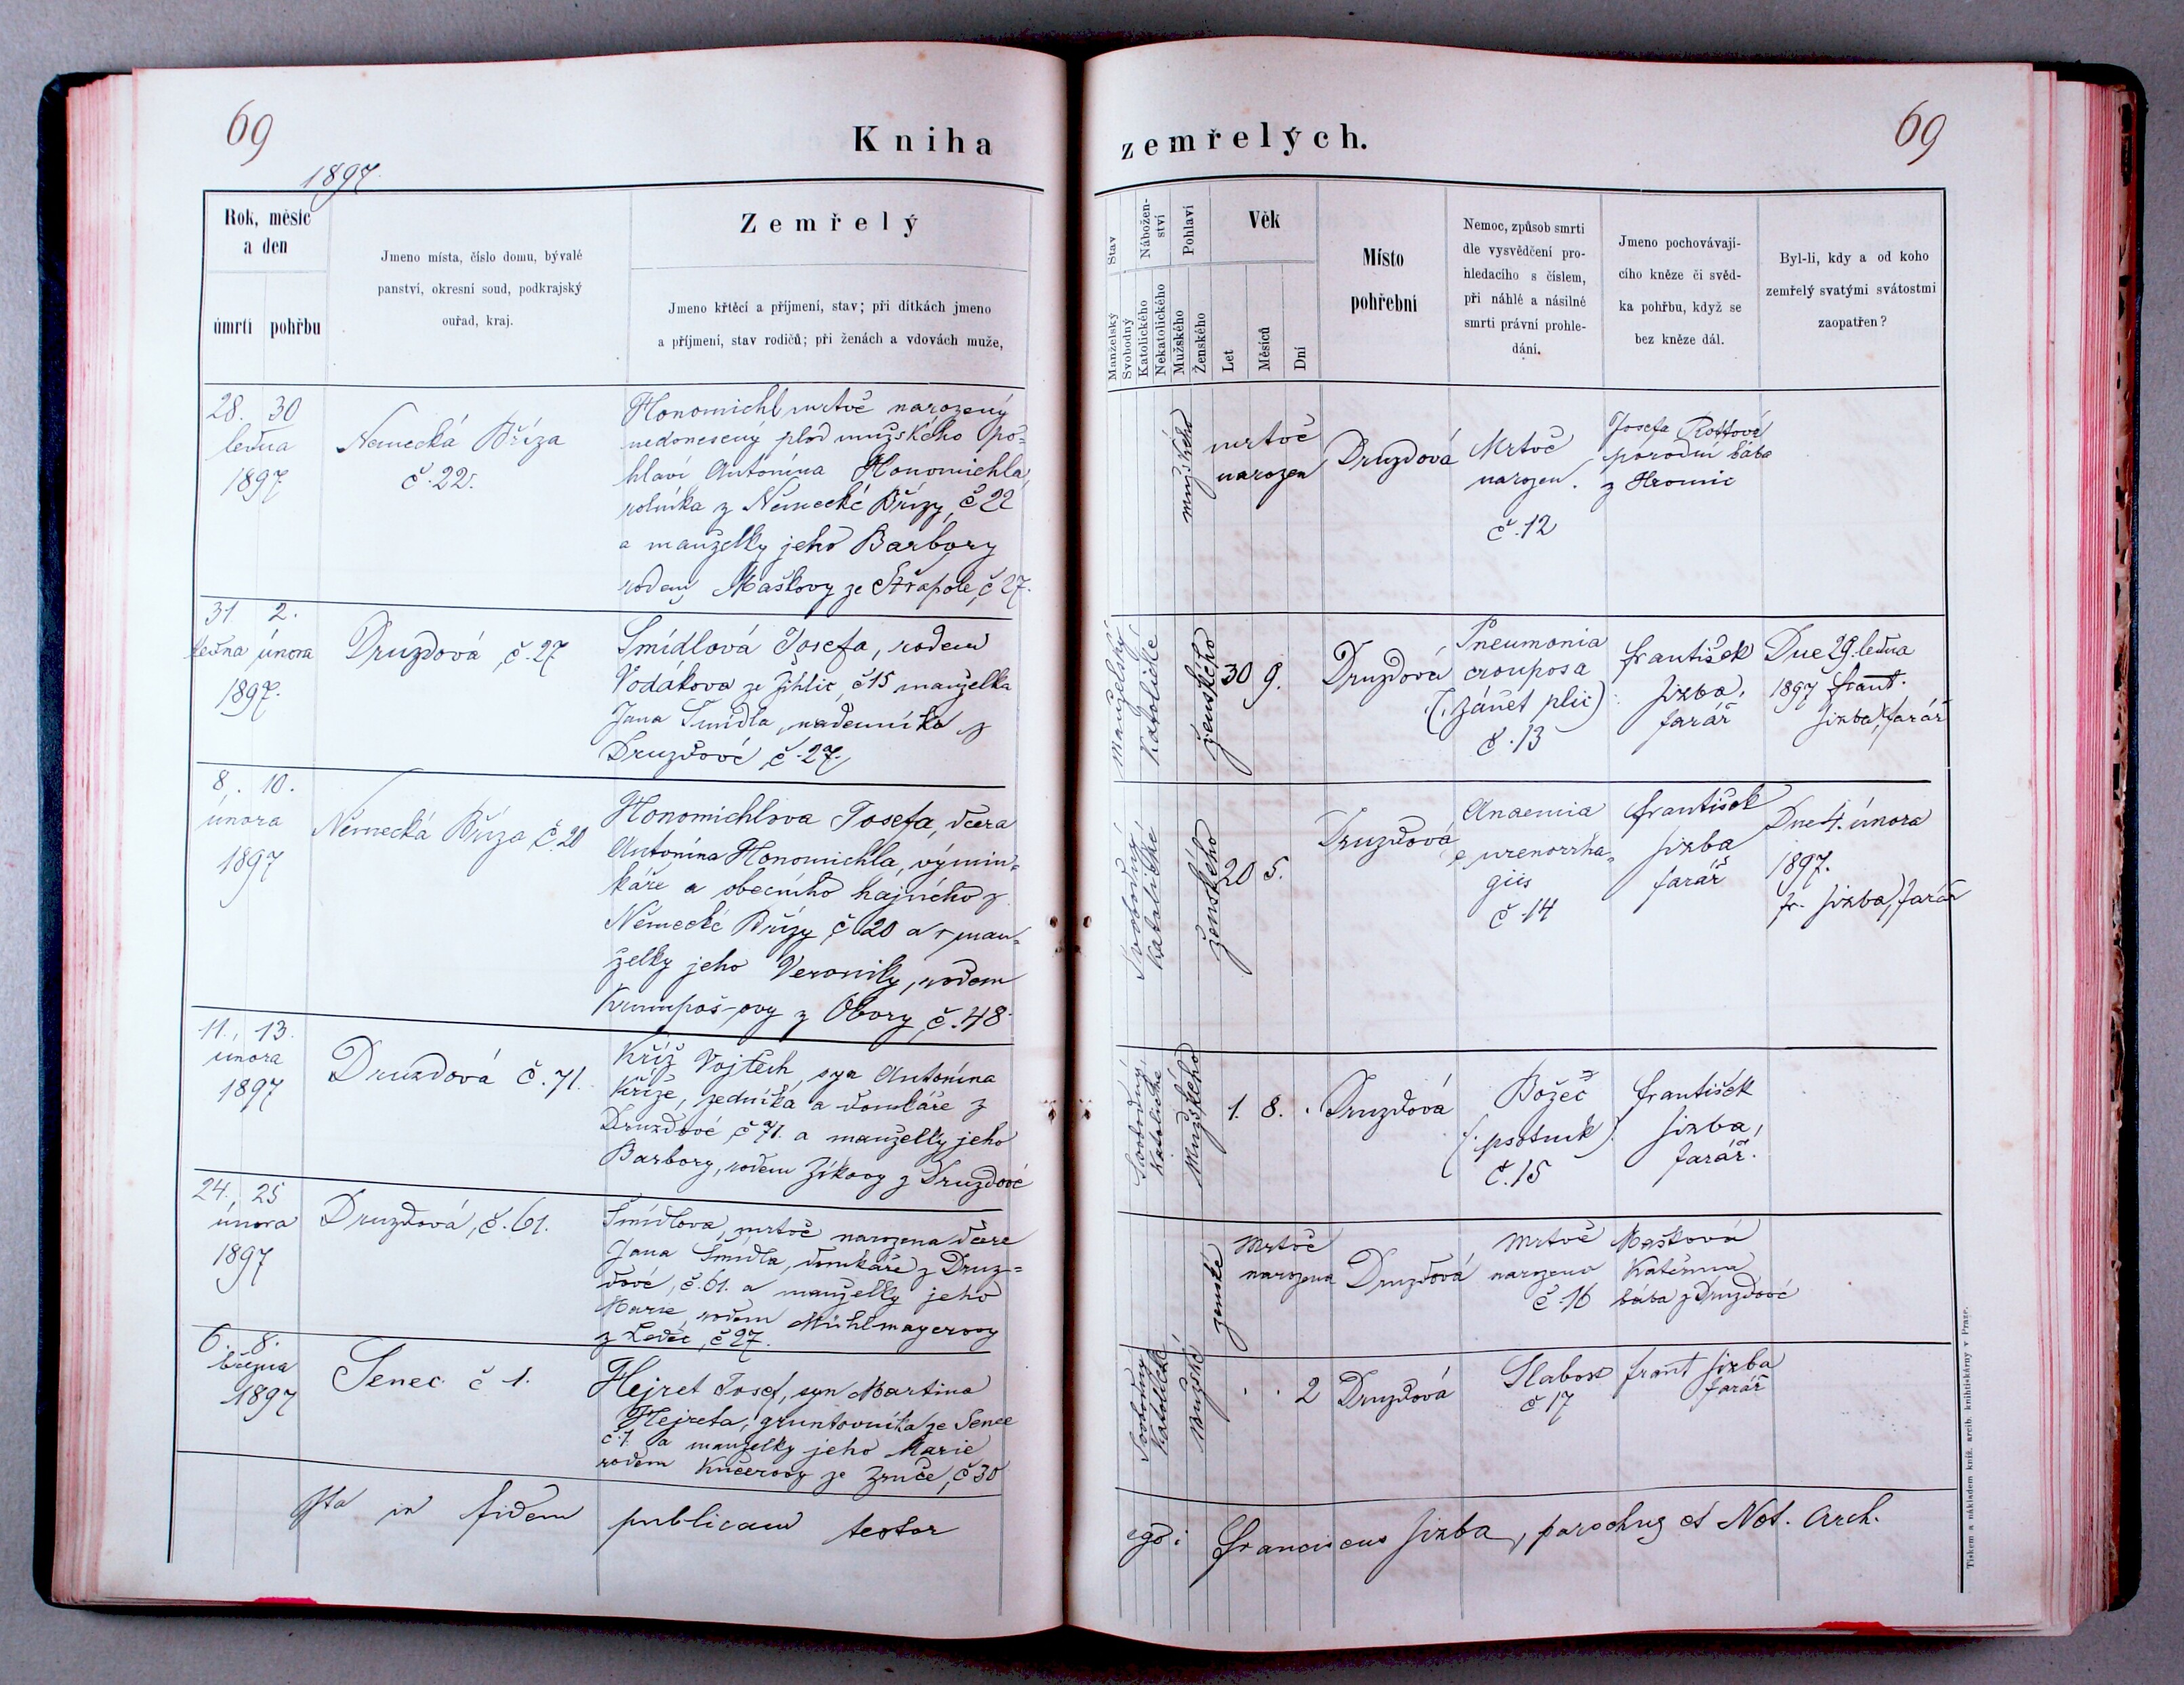 69
Kniha
1897.
Rok, měsíc
a den
úmrtí pohřbu
Jmeno místa, číslo domu, bývalé
panství, okresní soud, podkrajský
ouřad, kraj.
Zemřelý
Jmeno křtěcí a příjmení, stav; při dítkách jmeno
a příjmení, stav rodičů; při ženách a vdovách muže,
28. 30
ledna
1897
Německá Bříza
č. 22.
Honomichl mrtvě narozený
nedonesený plod mužského po-
hlaví Antonína Honomichla,
rolníka z Německé Břízy, č 22
a manželky jeho Barbory
rodem Maškovy ze Střapole, č 27.
31 2.
ledna února
1897.
Druzdová, č. 27
Šmídlová Josefa, rodem
Vodákova ze Žihlic, č 15 manželka
Jana Šmídla, nádenníka z
Druzdové, č. 27.
8. 10.
února
1897
Německá Bříza č. 20
Honomichlova Josefa, dcera
Antonína Honomichla, výmin-
káře a obecního hajného z
Německé Břízy, č 20 a † man-
želky jeho Veroniky, rodem
z Obory č. 48.
11., 13.
února
1897
Druzdová č. 71.
Kříž Vojtěch, syn Antonína
Kříže, zedníka a domkáře z
Druzdové, č 71. a manželky jeho
Barbory, rodem Zikovy z Druzdové
24., 25
února
1897
Druzdová, č. 61.
Šmídlova, mrtvě narozena dcera
Jana Šmídla, domkáře z Druz-
dové, č. 61. a manželky jeho
Marie, rodem Mühlmayerovy
z Ledec, č 27.
6. 8.
března
1897
Senec č 1.
Hejret Josef, syn Martina
Hejreta, gruntovníka ze Sence
č. 1. a manželky jeho Marie
rodem Kučerovy ze Zruče, č 30
Ita in fidem publicam testor
69
zemřelých.
Stav
Nábožen-
ství
Pohlaví
Věk
Manželský
Svobodný
Katolického
Nekatolického
Mužského
Ženského
Let
Měsíců
Dní
Místo
pohřební
Nemoc, způsob smrti
dle vysvědčení pro-
hledacího s číslem,
při náhlé a násilné
smrti právní prohle-
dání.
Jmeno pochovávají-
cího kněze či svěd-
ka pohřbu, když se
bez kněze dál.
Byl-li, kdy a od koho
zemřelý svatými svátostmi
zaopatřen?
mužského
mrtvě
narozen
Druzdová
Mrtvě
narozen.
č. 12
Josefa Rottová
porodní bába
z Hromic
manželský
katolické
ženského
30 9.
Druzdová
Pneumonia
crouposa
(: zánět plic) :
č. 13
František
Sixba,
farář
Dne 29. ledna
1897 Frant.
Sixba, farář
Svobodný
katolické
ženského
20 5.
Druzdová
Anaemia
e menorrha-
giis
č. 14
František
Sixba
farář
Dne 4. února
1897.
Fr. Sixba, farář
Svobodný
katolické
Mužského
1. 8. .
Druzdová
Božec
(: psotník :)
č. 15
František
Sixba,
farář.
ženské
Mrtvě
narozena
Druzdová
Mrtvě
narozena
č. 16
Mašková
Kateřina
bába z Druzdové
Svobodný
katolické
mužské
. . 2
Druzdová
Slabost
č 17
Frant Sixba
farář
ego: Franciscus Sixba, parochus et Not. Arch.
Tiskem a nákladem kníž. arcib. knihtiskárny v Praze.